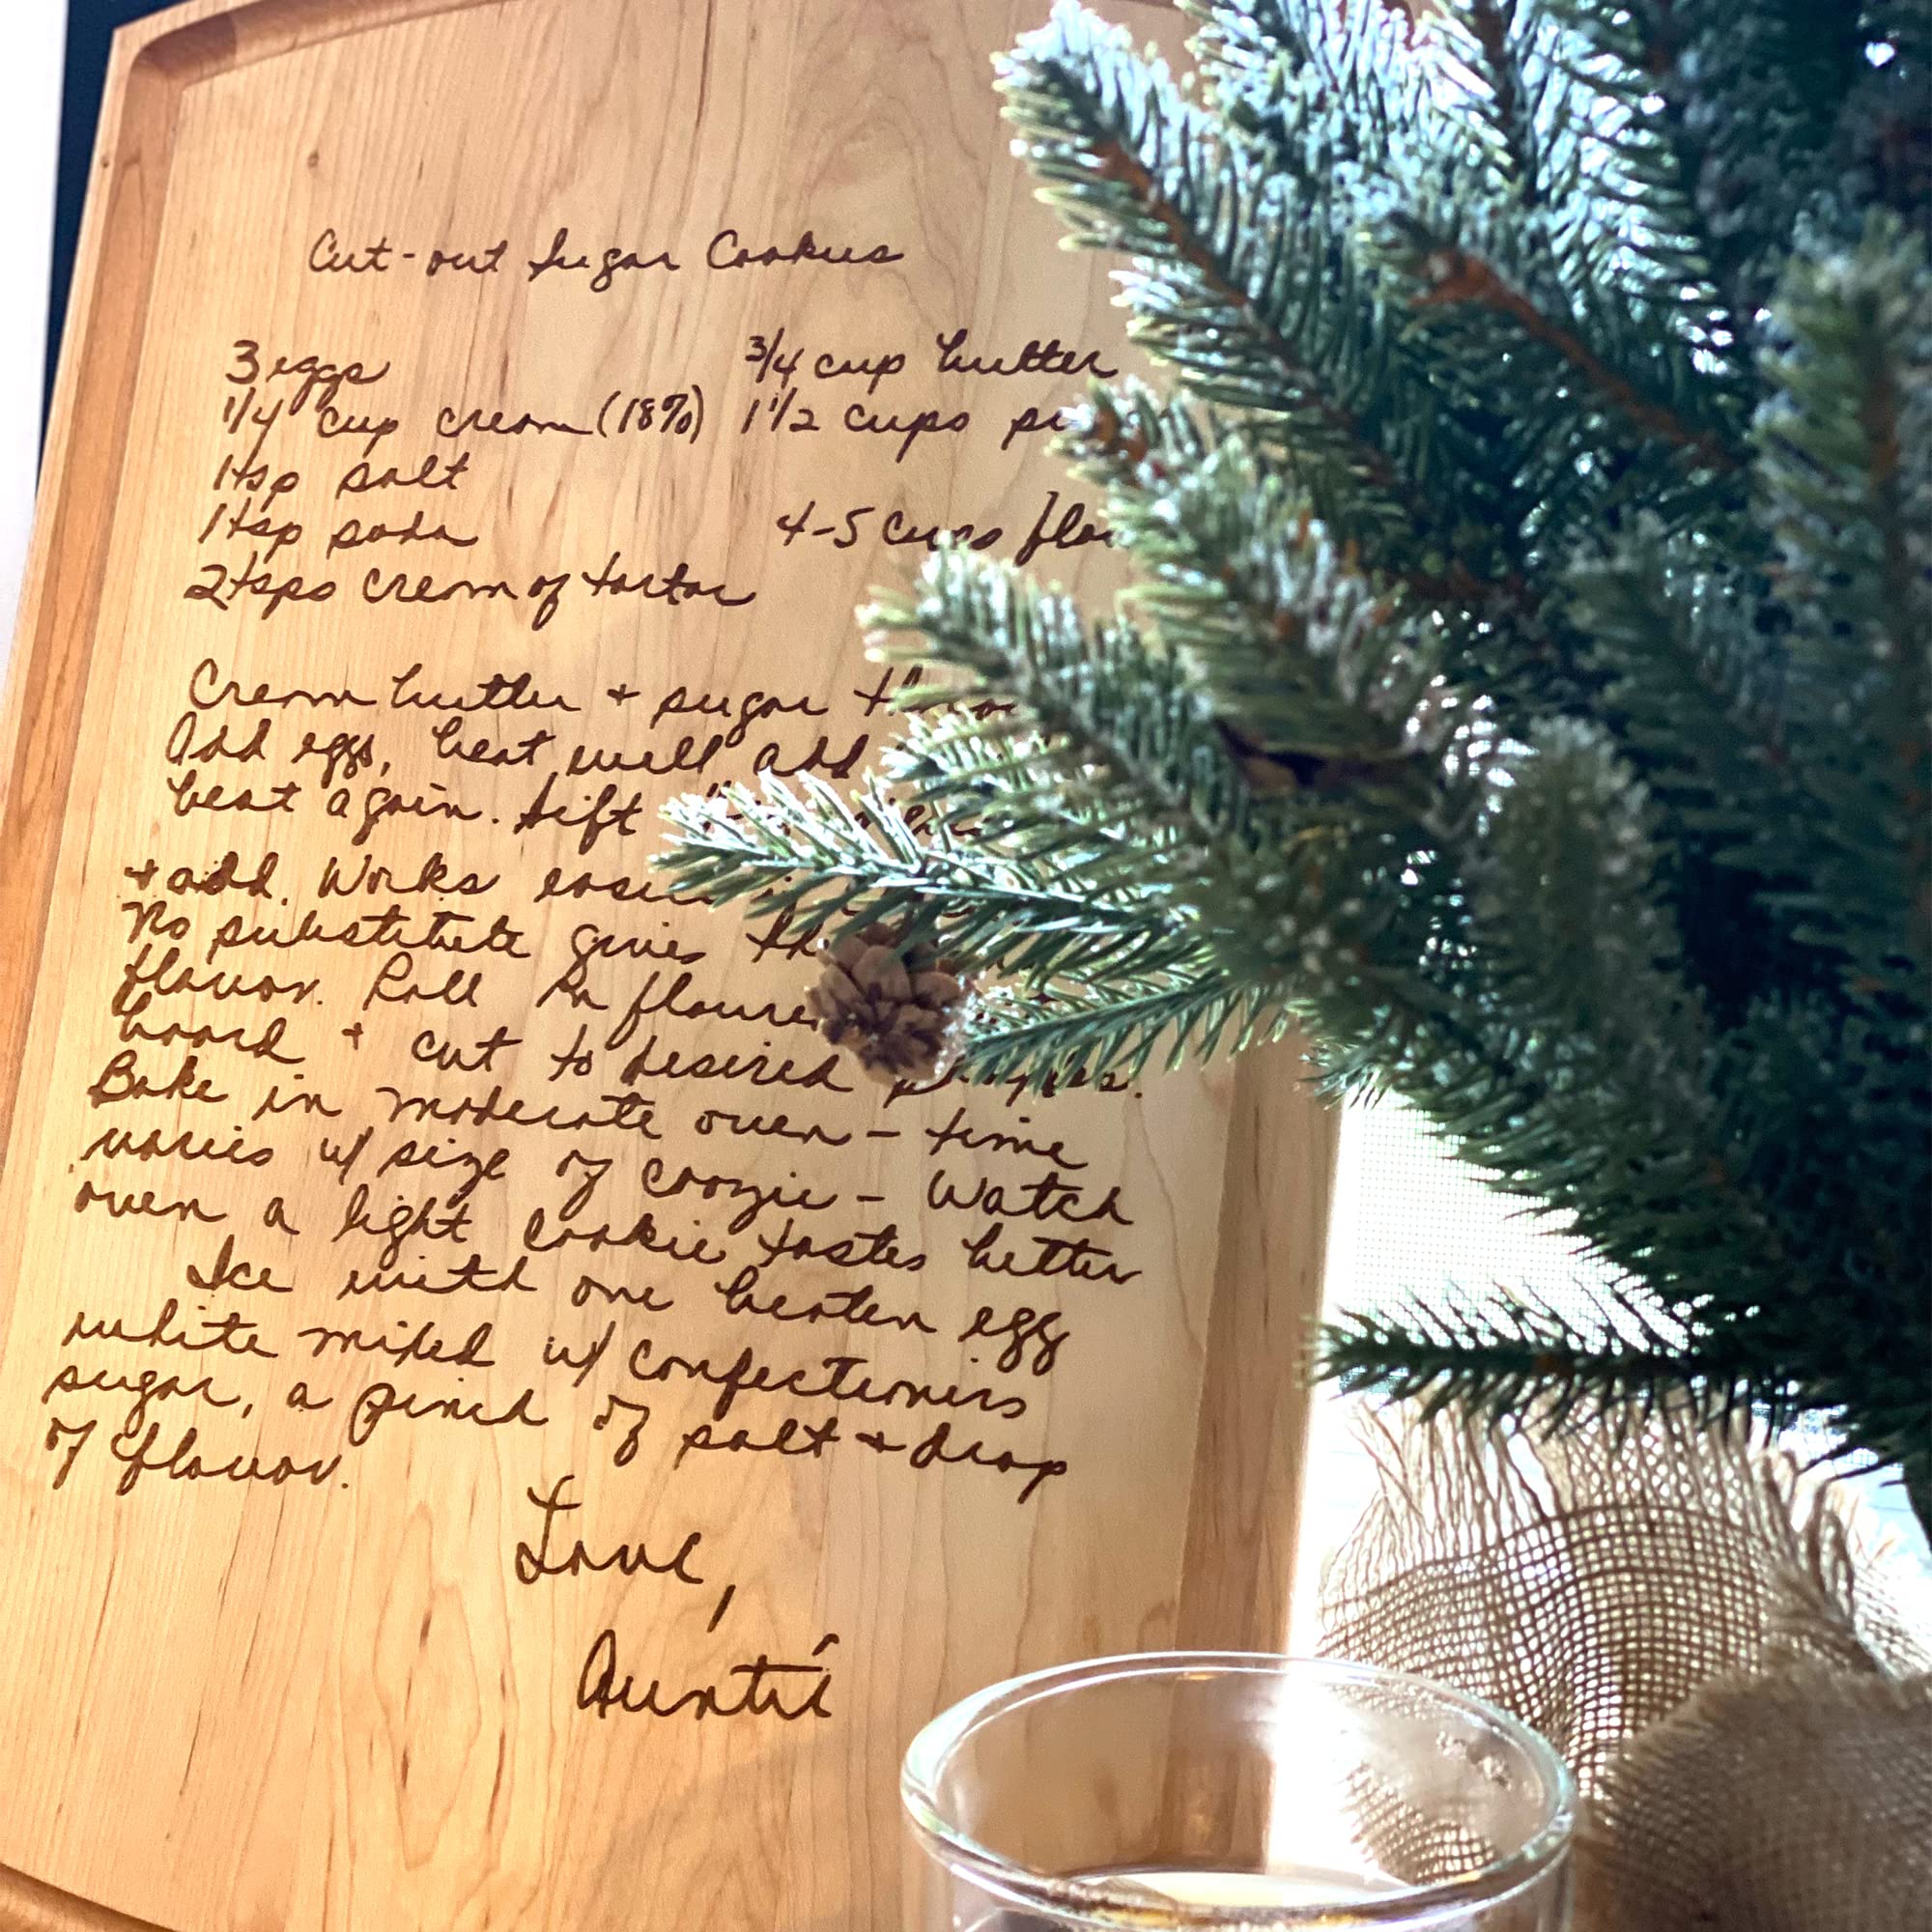 Cut-out Sugar Cookies
3 eggs
3/4 cup butter
1/4 cup cream (18%)
1 1/2 cups
1 tsp salt
1 tsp soda
4-5 cups
2 tsps cream of tartar
Cream butter + sugar
Add eggs, beat well, add
beat again. Sift
+ add. Works
No substitute gives
flavor. Roll on
board + cut to desired
Bake in moderate oven - time
varies w/ size of coozie - Watch
oven a light cookie tastes better
Ice with one beaten egg
white mixed w/ confectioners
sugar, a pinch of salt + drop
of flavor.
Love,
Auntie